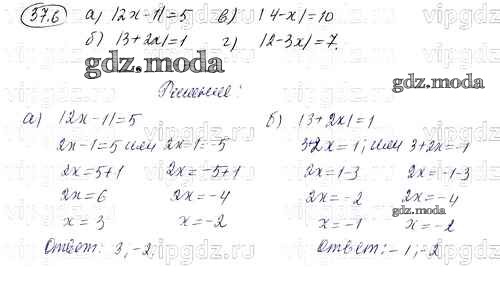 37.6 а) |2x-1|=5 в) |4-x|=10
б) |3+2x|=1 г) |2-3x|=7.
gdz.moda
gdz.moda
Решение:
а) |2x-1|=5
2x-1=5 или 2x-1=-5
2x=5+1 2x=-5+1
2x=6 2x=-4
x=3 x=-2
Ответ: 3, -2.
б) |3+2x|=1
3+2x=1; или 3+2x=-1
2x=1-3 2x=-1-3
2x=-2 2x=-4
gdz.moda
x=-1 x=-2
Ответ: -1; -2